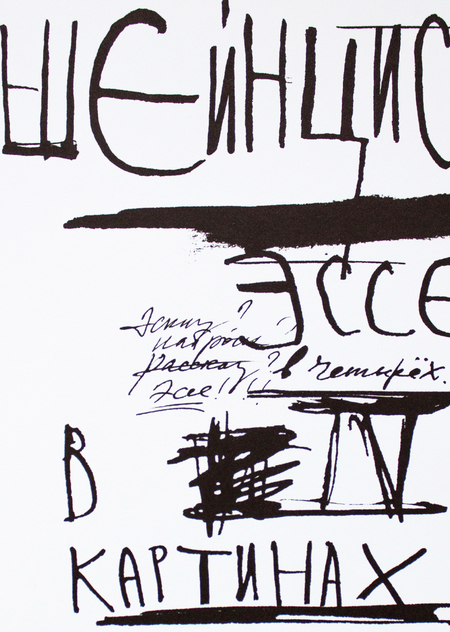 ШЕЙНЦИС
ЭССЕ
Эскиз?
наброски?
рассказ?
Эссе!!!! в четырёх.
В IV
КАРТИНАХ